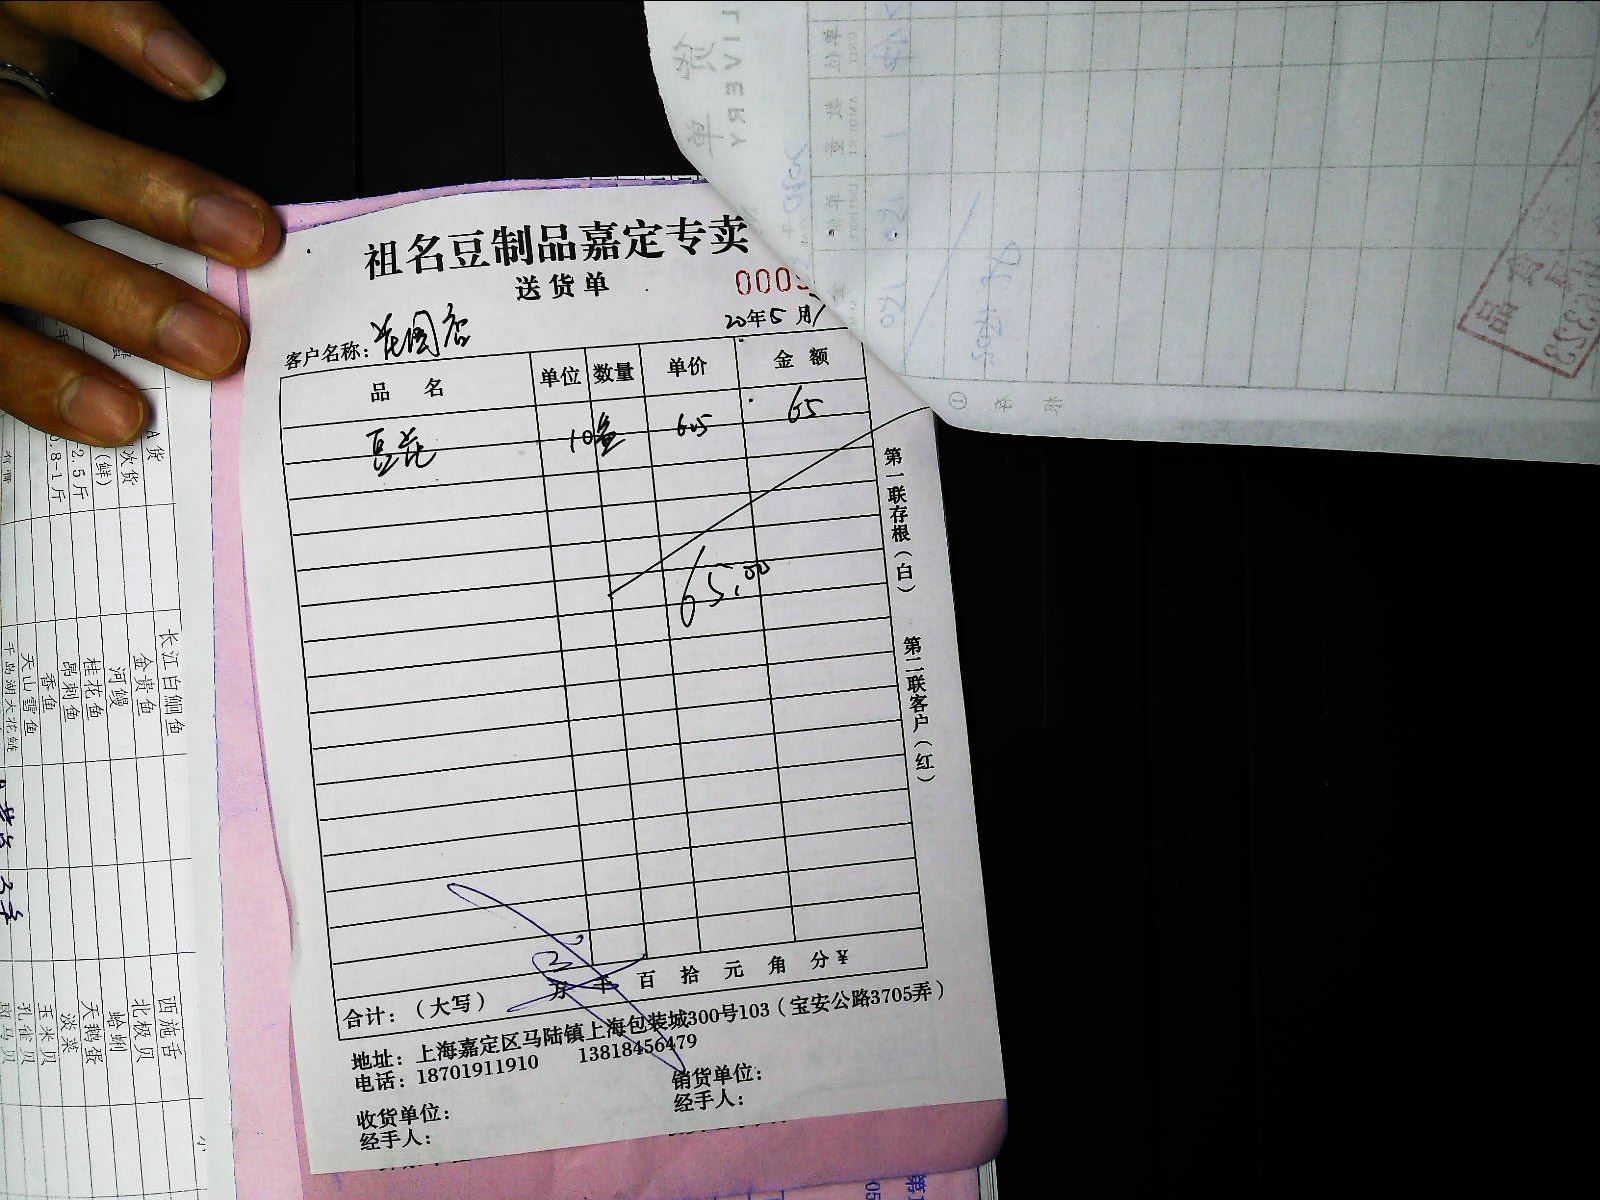 祖名豆制品嘉定专卖
送货单
000
客户名称：花园店
20年5月
品名 单位 数量 单价 金额
豆花 10盒 6.5 65
65.00
合计：（大写） 万 千 百 拾 元 角 分 ¥
地址：上海嘉定区马陆镇上海包装城300号103（宝安公路3705弄）
电话：18701911910 13818456479
收货单位：
销货单位：
经手人：
经手人：
第一联存根（白）
第二联客户（红）
A货
次货
(鲜)
2.5斤
0.8-1斤
长江白鮰鱼
金贵鱼
河鳗
桂花鱼
昂刺鱼
香鱼
天山雪鱼
千岛湖大花鲢
西施舌
北极贝
蛤蜊
天鹅蛋
淡菜
玉米贝
孔雀贝
斑马贝